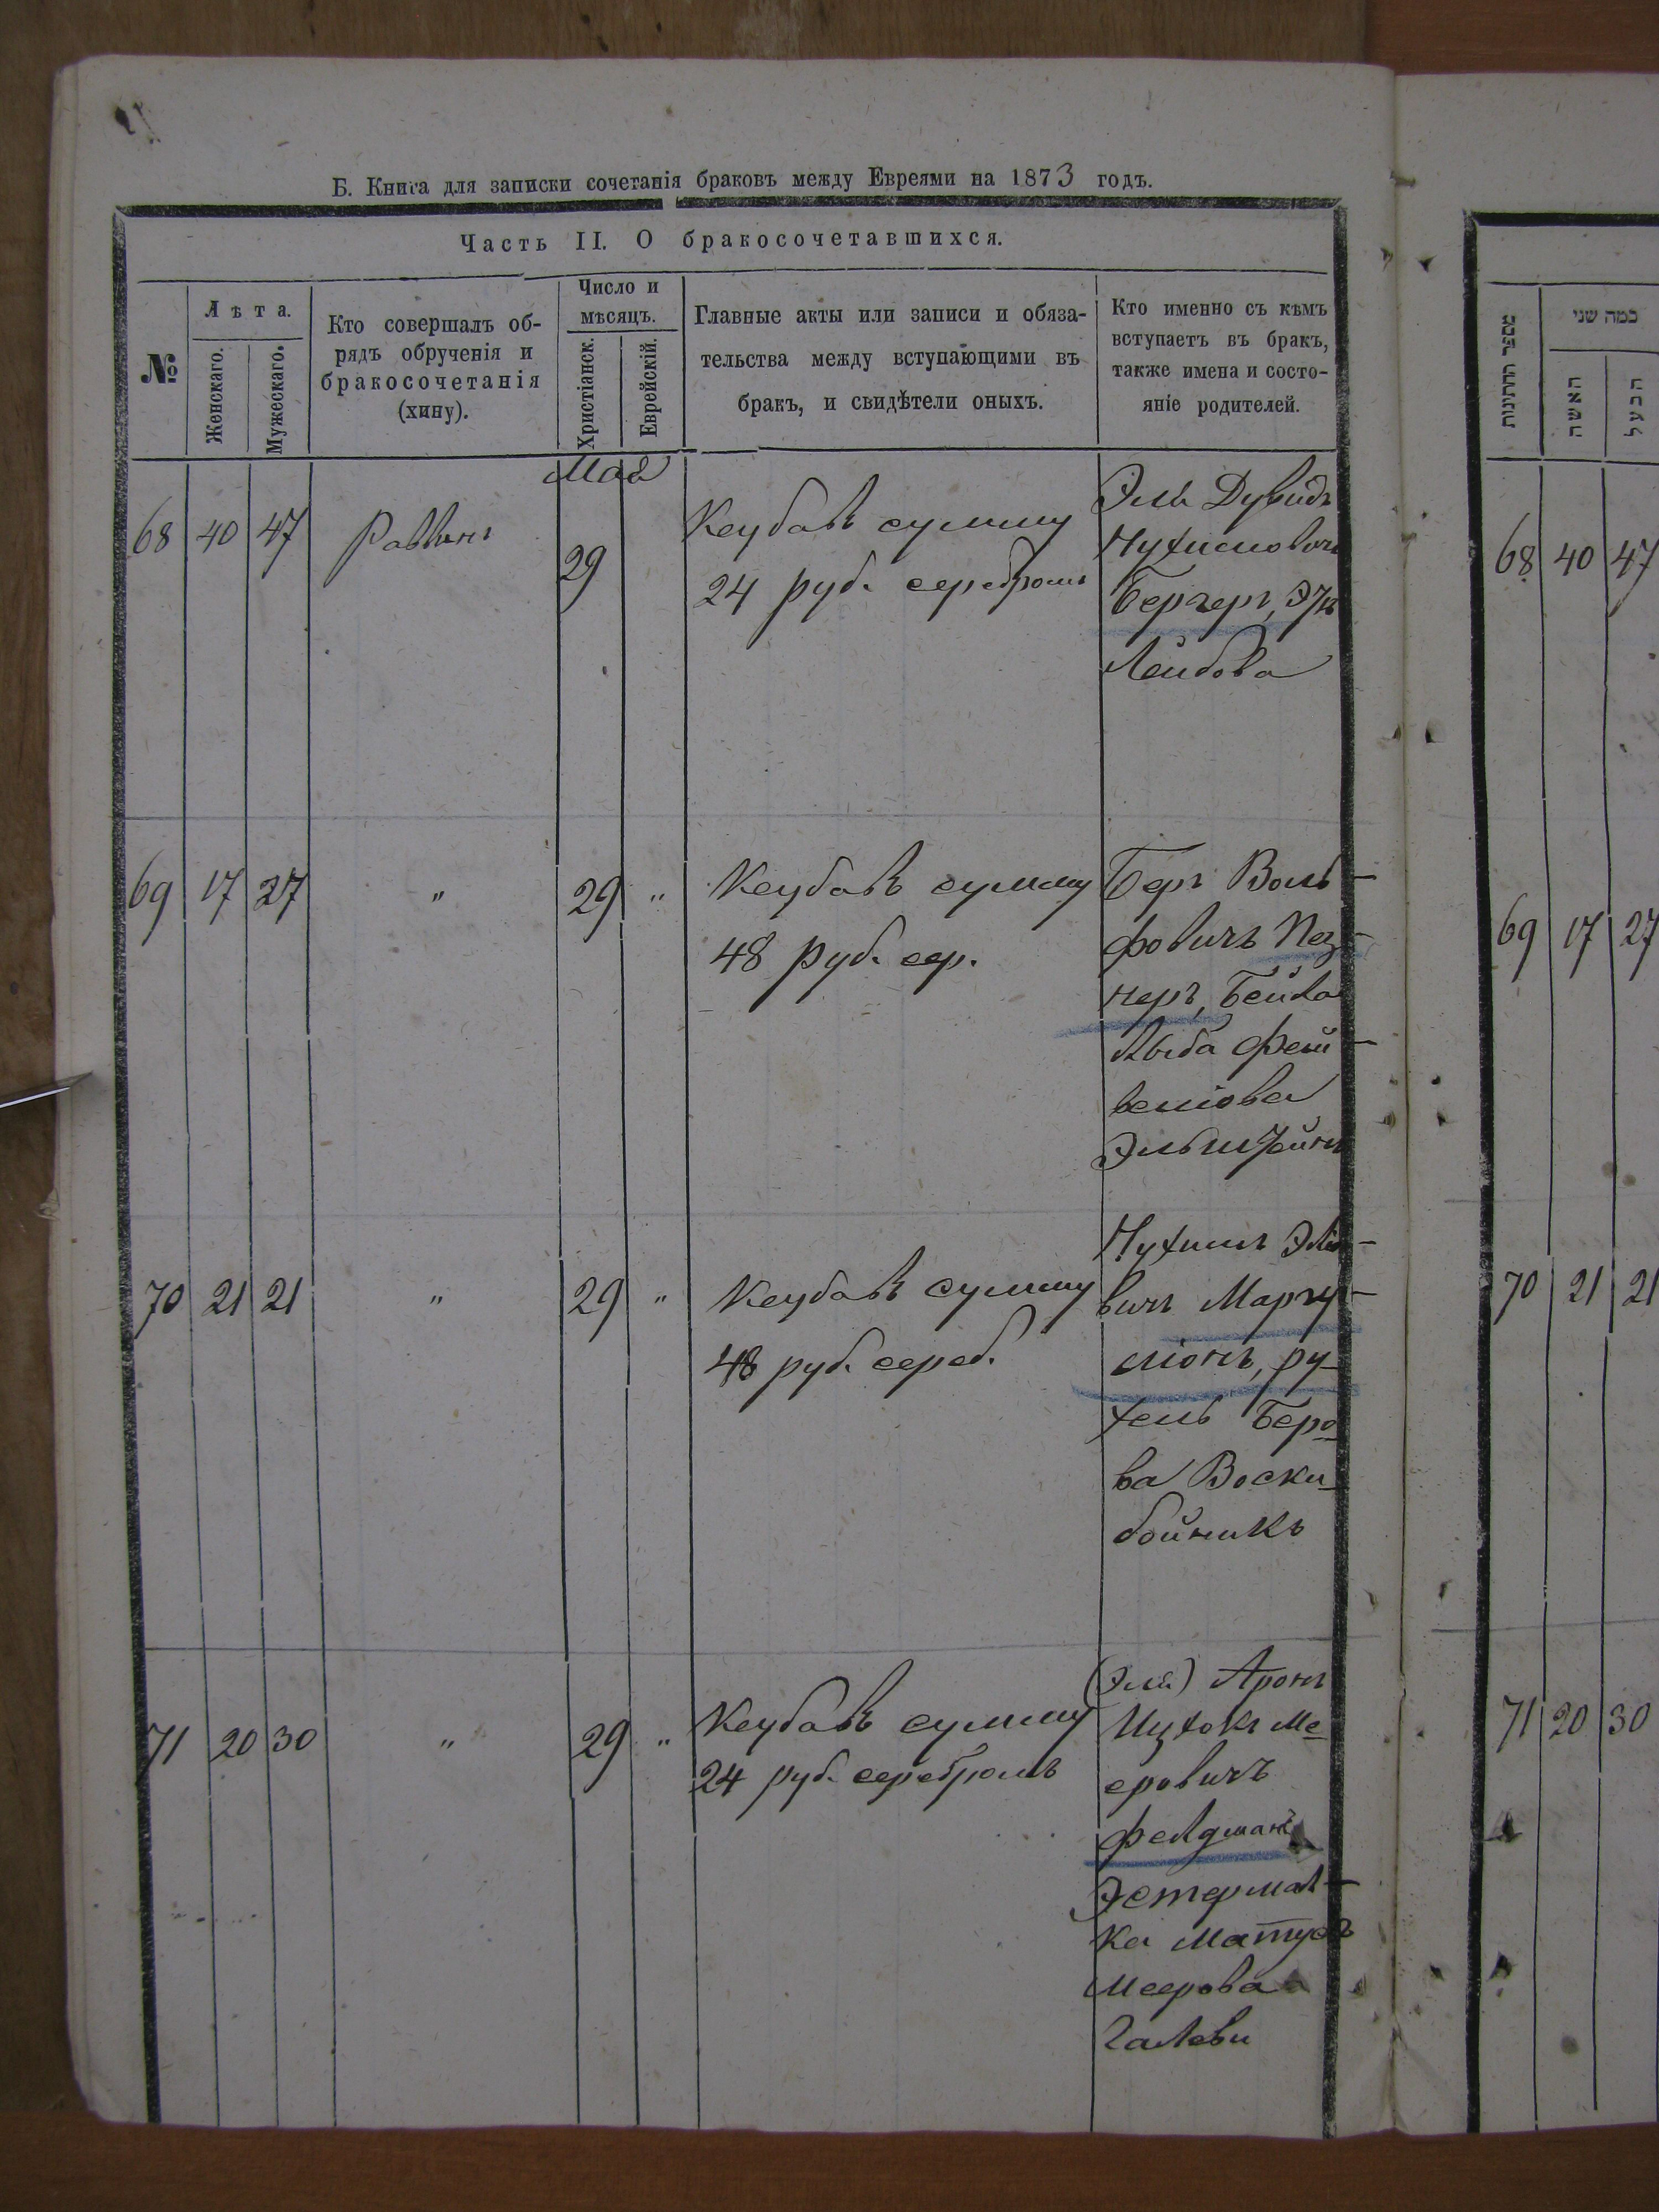 Б. Книга для записки сочетанія браковъ между Евреями на 1873 годъ.
Часть II. О бракосочетавшихся.
№
Лѣта.
Женскаго.
Мужескаго.
Кто совершалъ об-
рядъ обрученія и
бракосочетанія
(хину).
Число и
мѣсяцъ.
Христіанск.
Еврейскій.
Главные акты или записи и обяза-
тельства между вступающими въ
бракъ, и свидѣтели оныхъ.
Кто именно съ кѣмъ
вступаетъ въ бракъ,
также имена и состо-
яніе родителей.
Мая
68 40 47 Раввинъ 29
Кеубавъ сумму
24 руб. серебромъ
Эль Дувидъ
Нухимовичъ
Бергеръ,
Лейбова
69 17 27 " 29 "
Кеубавъ сумму
48 руб. сер.
Беръ Воль-
фовичъ Пез-
неръ, Бейла
Лыба Фей-
вешова
Эльштейнъ
70 21 21 " 29 "
Кеубавъ сумму
48 руб. сереб.
Нухимъ
вичъ Маргу-
ліонъ, Ру-
хель Беро-
ва Воски-
бойникъ
71 20 30 " 29 "
Кеубавъ сумму
24 руб. серебромъ
(Эля) Аронъ
Ицхокъ Ме-
еровичъ
Фелдманъ
Эстермал-
ка Матусъ
Меерова
Галеви
מספר החתונות
כמה שני
האשה
הבעל
68 40 47
69 17 27
70 21 21
71 20 30